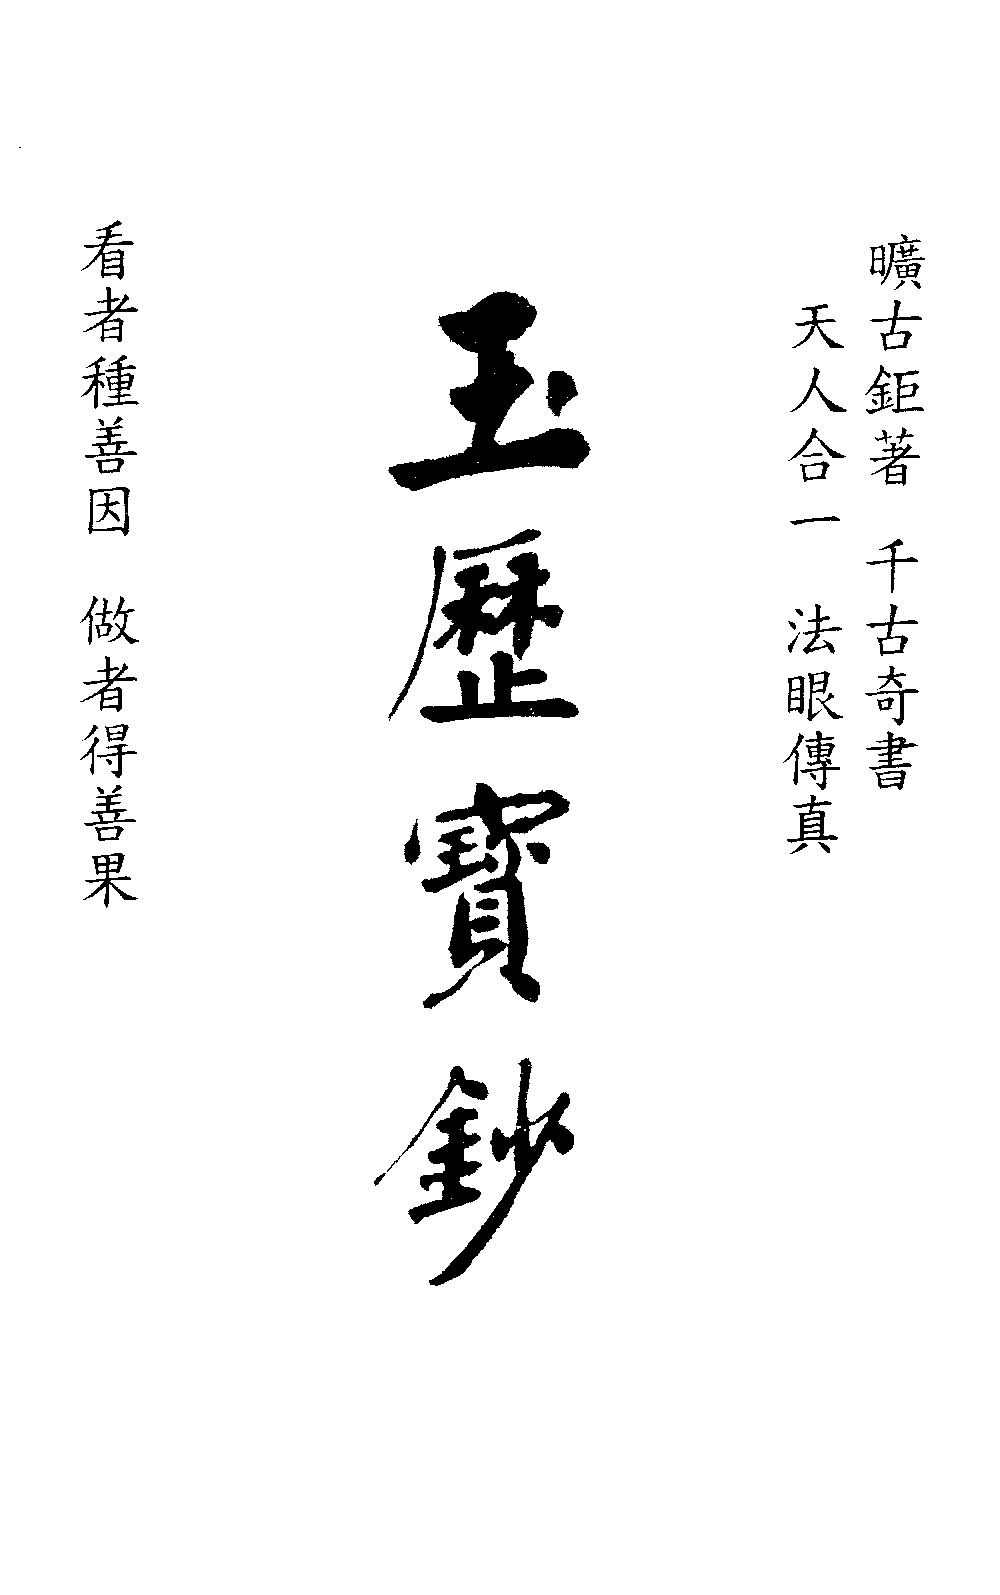 曠古鉅著　千古奇書
天人合一　法眼傳真
玉歷寶鈔
看者種善因　做者得善果